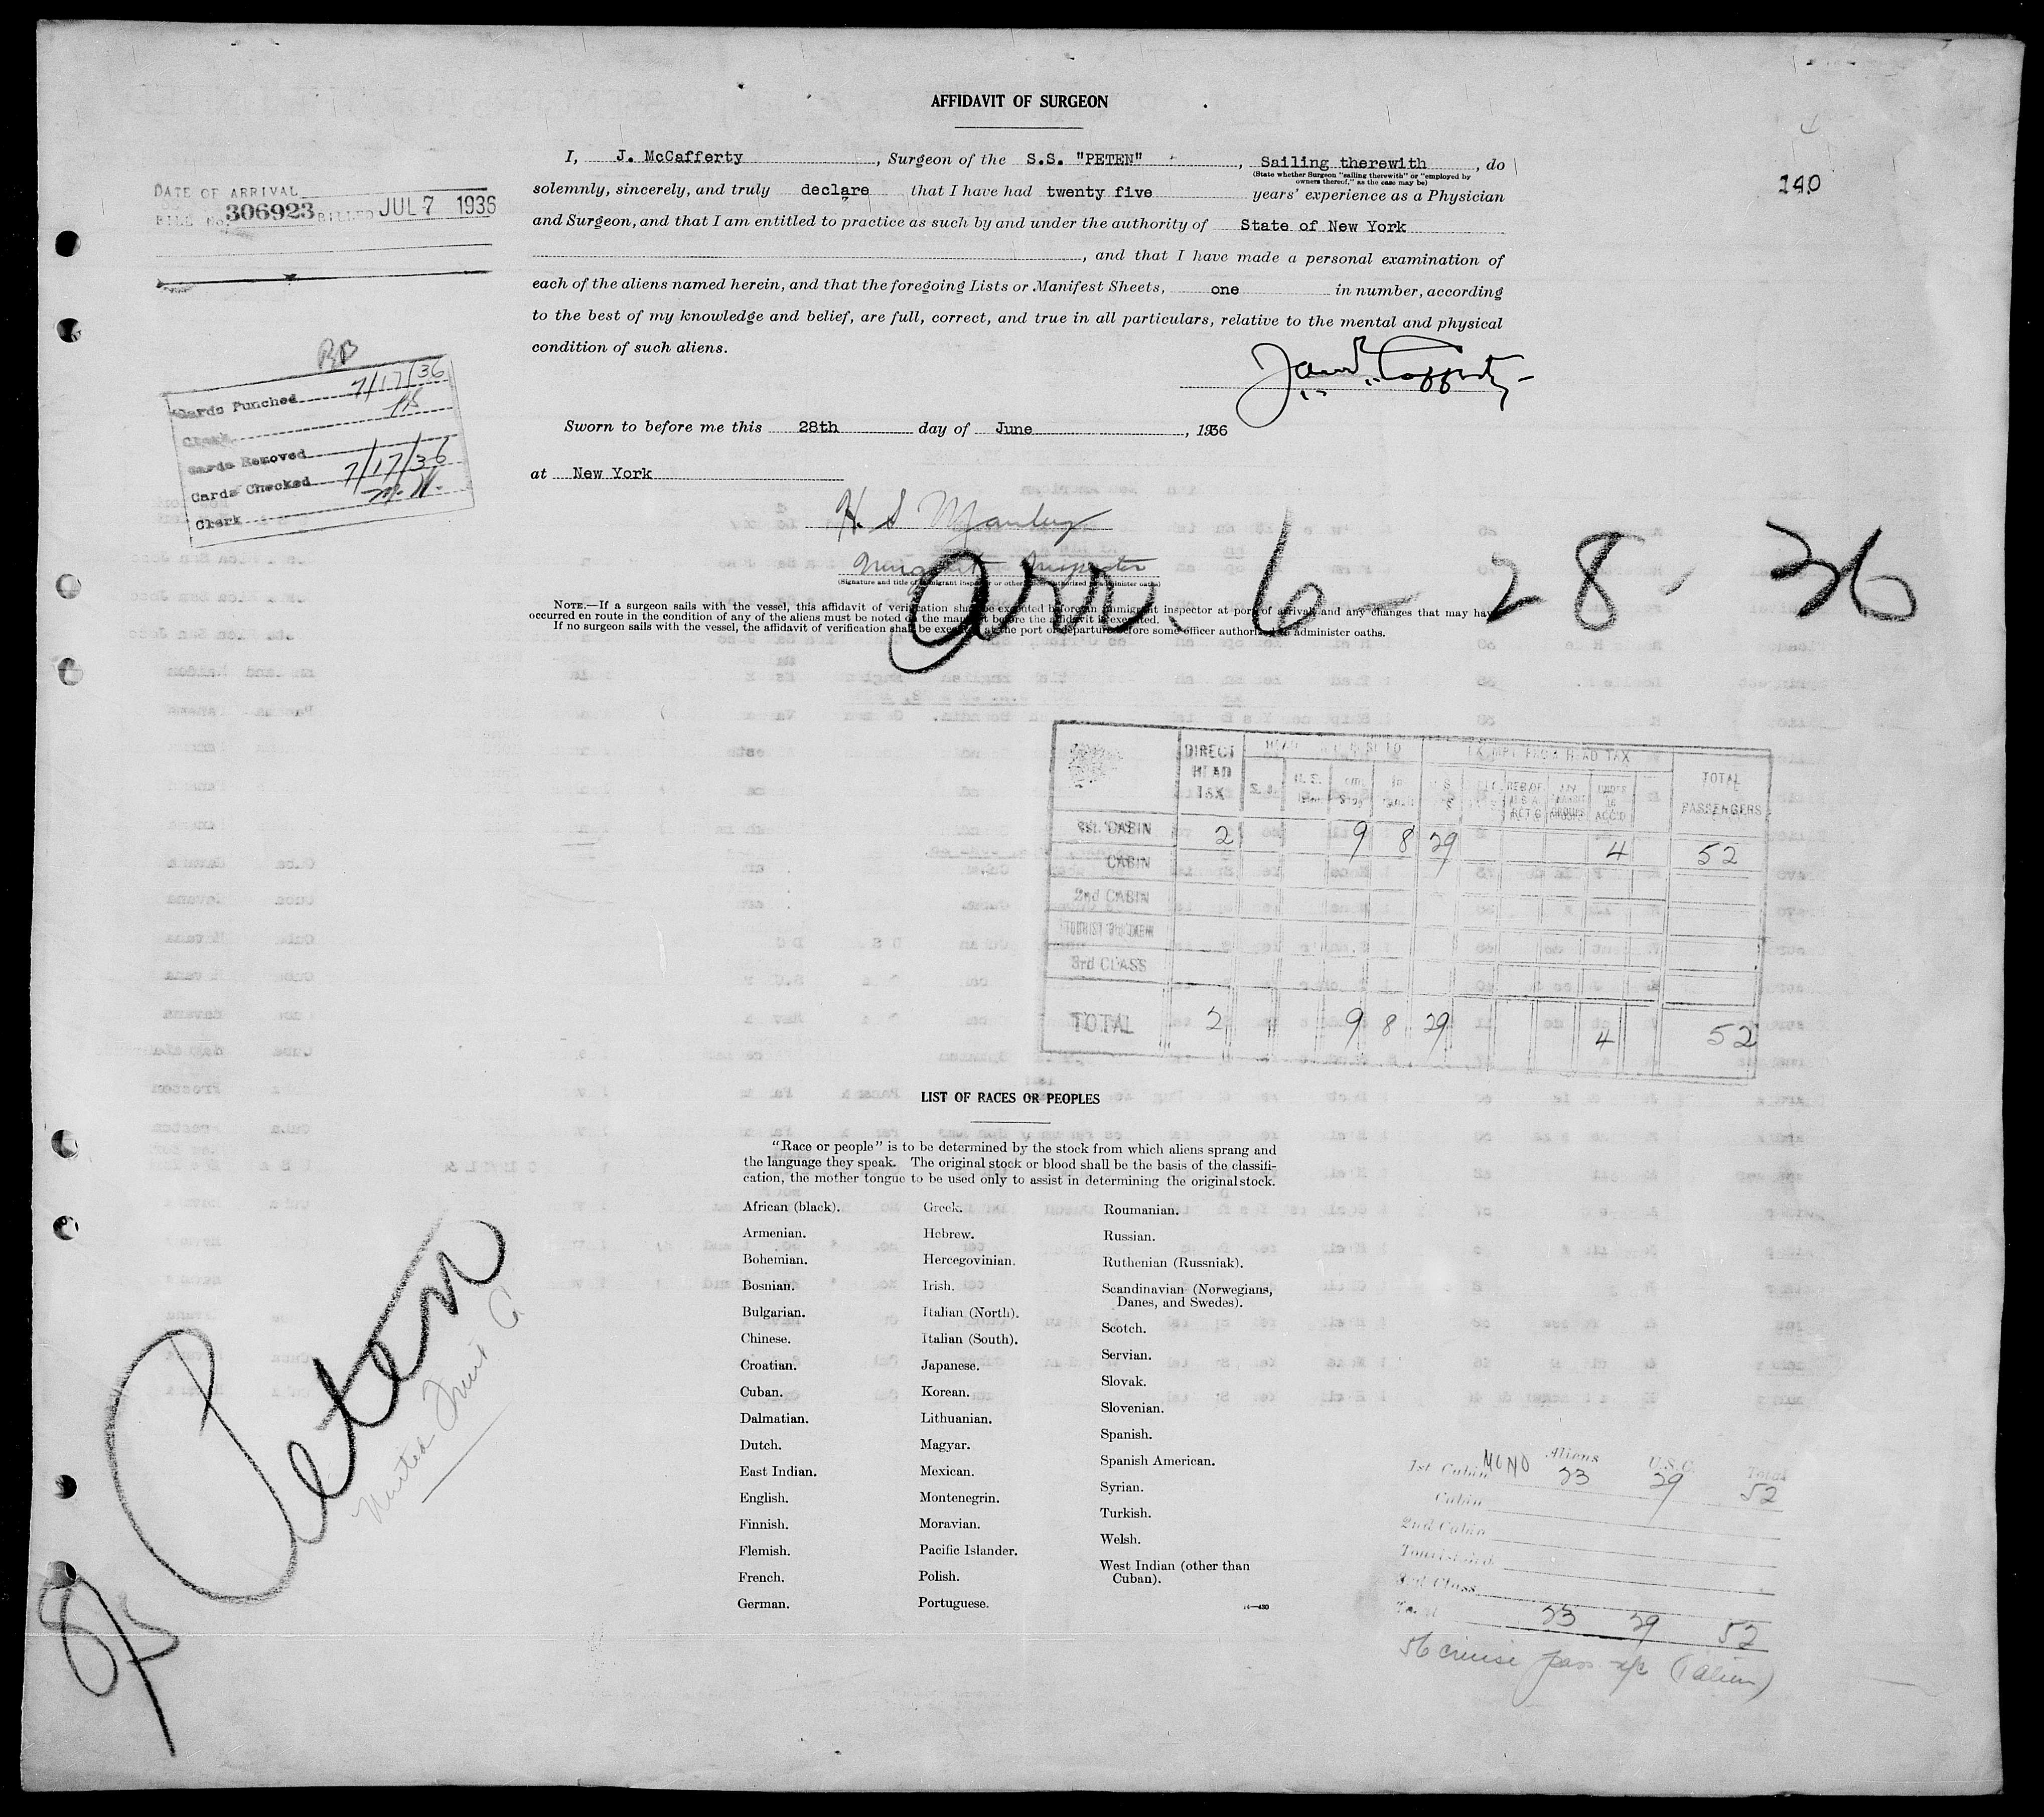 AFFIDAVIT OF SURGEON
I, J. McCafferty, Surgeon of the S.S. "PETEN", Sailing therewith, do
(State whether Surgeon "sailing therewith" or "employed by
owners thereof," as the case may be)
solemnly, sincerely, and truly declare that I have had twenty five years' experience as a Physician
and Surgeon, and that I am entitled to practice as such by and under the authority of State of New York
, and that I have made a personal examination of
each of the aliens named herein, and that the foregoing Lists or Manifest Sheets, one in number, according
to the best of my knowledge and belief, are full, correct, and true in all particulars, relative to the mental and physical
condition of such aliens.
140
DATE OF ARRIVAL
FILE No. 306923 BILLED JUL 7 1936
RB
Cards Punched 7/17/36
Clerk
Cards Removed
Cards Checked 7/17/36
Clerk M.N.
Sworn to before me this 28th day of June, 1936
at New York
H. S. Manley
Immigrant Inspector
(Signature and title of immigrant inspector or other officer authorized to administer oaths)
Arr. 6-28-36
NOTE.—If a surgeon sails with the vessel, this affidavit of verification shall be executed before an immigrant inspector at port of arrival and any changes that may have
occurred en route in the condition of any of the aliens must be noted on the manifest before the affidavit is executed.
If no surgeon sails with the vessel, the affidavit of verification shall be executed at the port of departure before some officer authorized to administer oaths.
DIRECT HEAD TAX
EXEMPT FROM HEAD TAX
TOTAL PASSENGERS
1st. CABIN 2 9 8 29 4 52
CABIN
2nd CABIN
TOURIST 3rd CABIN
3rd CLASS
TOTAL 2 9 8 29 4 52
LIST OF RACES OR PEOPLES
"Race or people" is to be determined by the stock from which aliens sprang and
the language they speak. The original stock or blood shall be the basis of the classifi-
cation, the mother tongue to be used only to assist in determining the original stock.
African (black).
Armenian.
Bohemian.
Bosnian.
Bulgarian.
Chinese.
Croatian.
Cuban.
Dalmatian.
Dutch.
East Indian.
English.
Finnish.
Flemish.
French.
German.
Greek.
Hebrew.
Hercegovinian.
Irish.
Italian (North).
Italian (South).
Japanese.
Korean.
Lithuanian.
Magyar.
Mexican.
Montenegrin.
Moravian.
Pacific Islander.
Polish.
Portuguese.
Roumanian.
Russian.
Ruthenian (Russniak).
Scandinavian (Norwegians,
Danes, and Swedes).
Scotch.
Servian.
Slovak.
Slovenian.
Spanish.
Spanish American.
Syrian.
Turkish.
Welsh.
West Indian (other than
Cuban).
Peten
United Fruit Co
Aliens U.S.C. Total
1st Cabin MONO 23 29 52
Cabin
2nd Cabin
Tourist 3rd.
3rd Class
Total 23 29 52
56 cruise pass (1 alien)